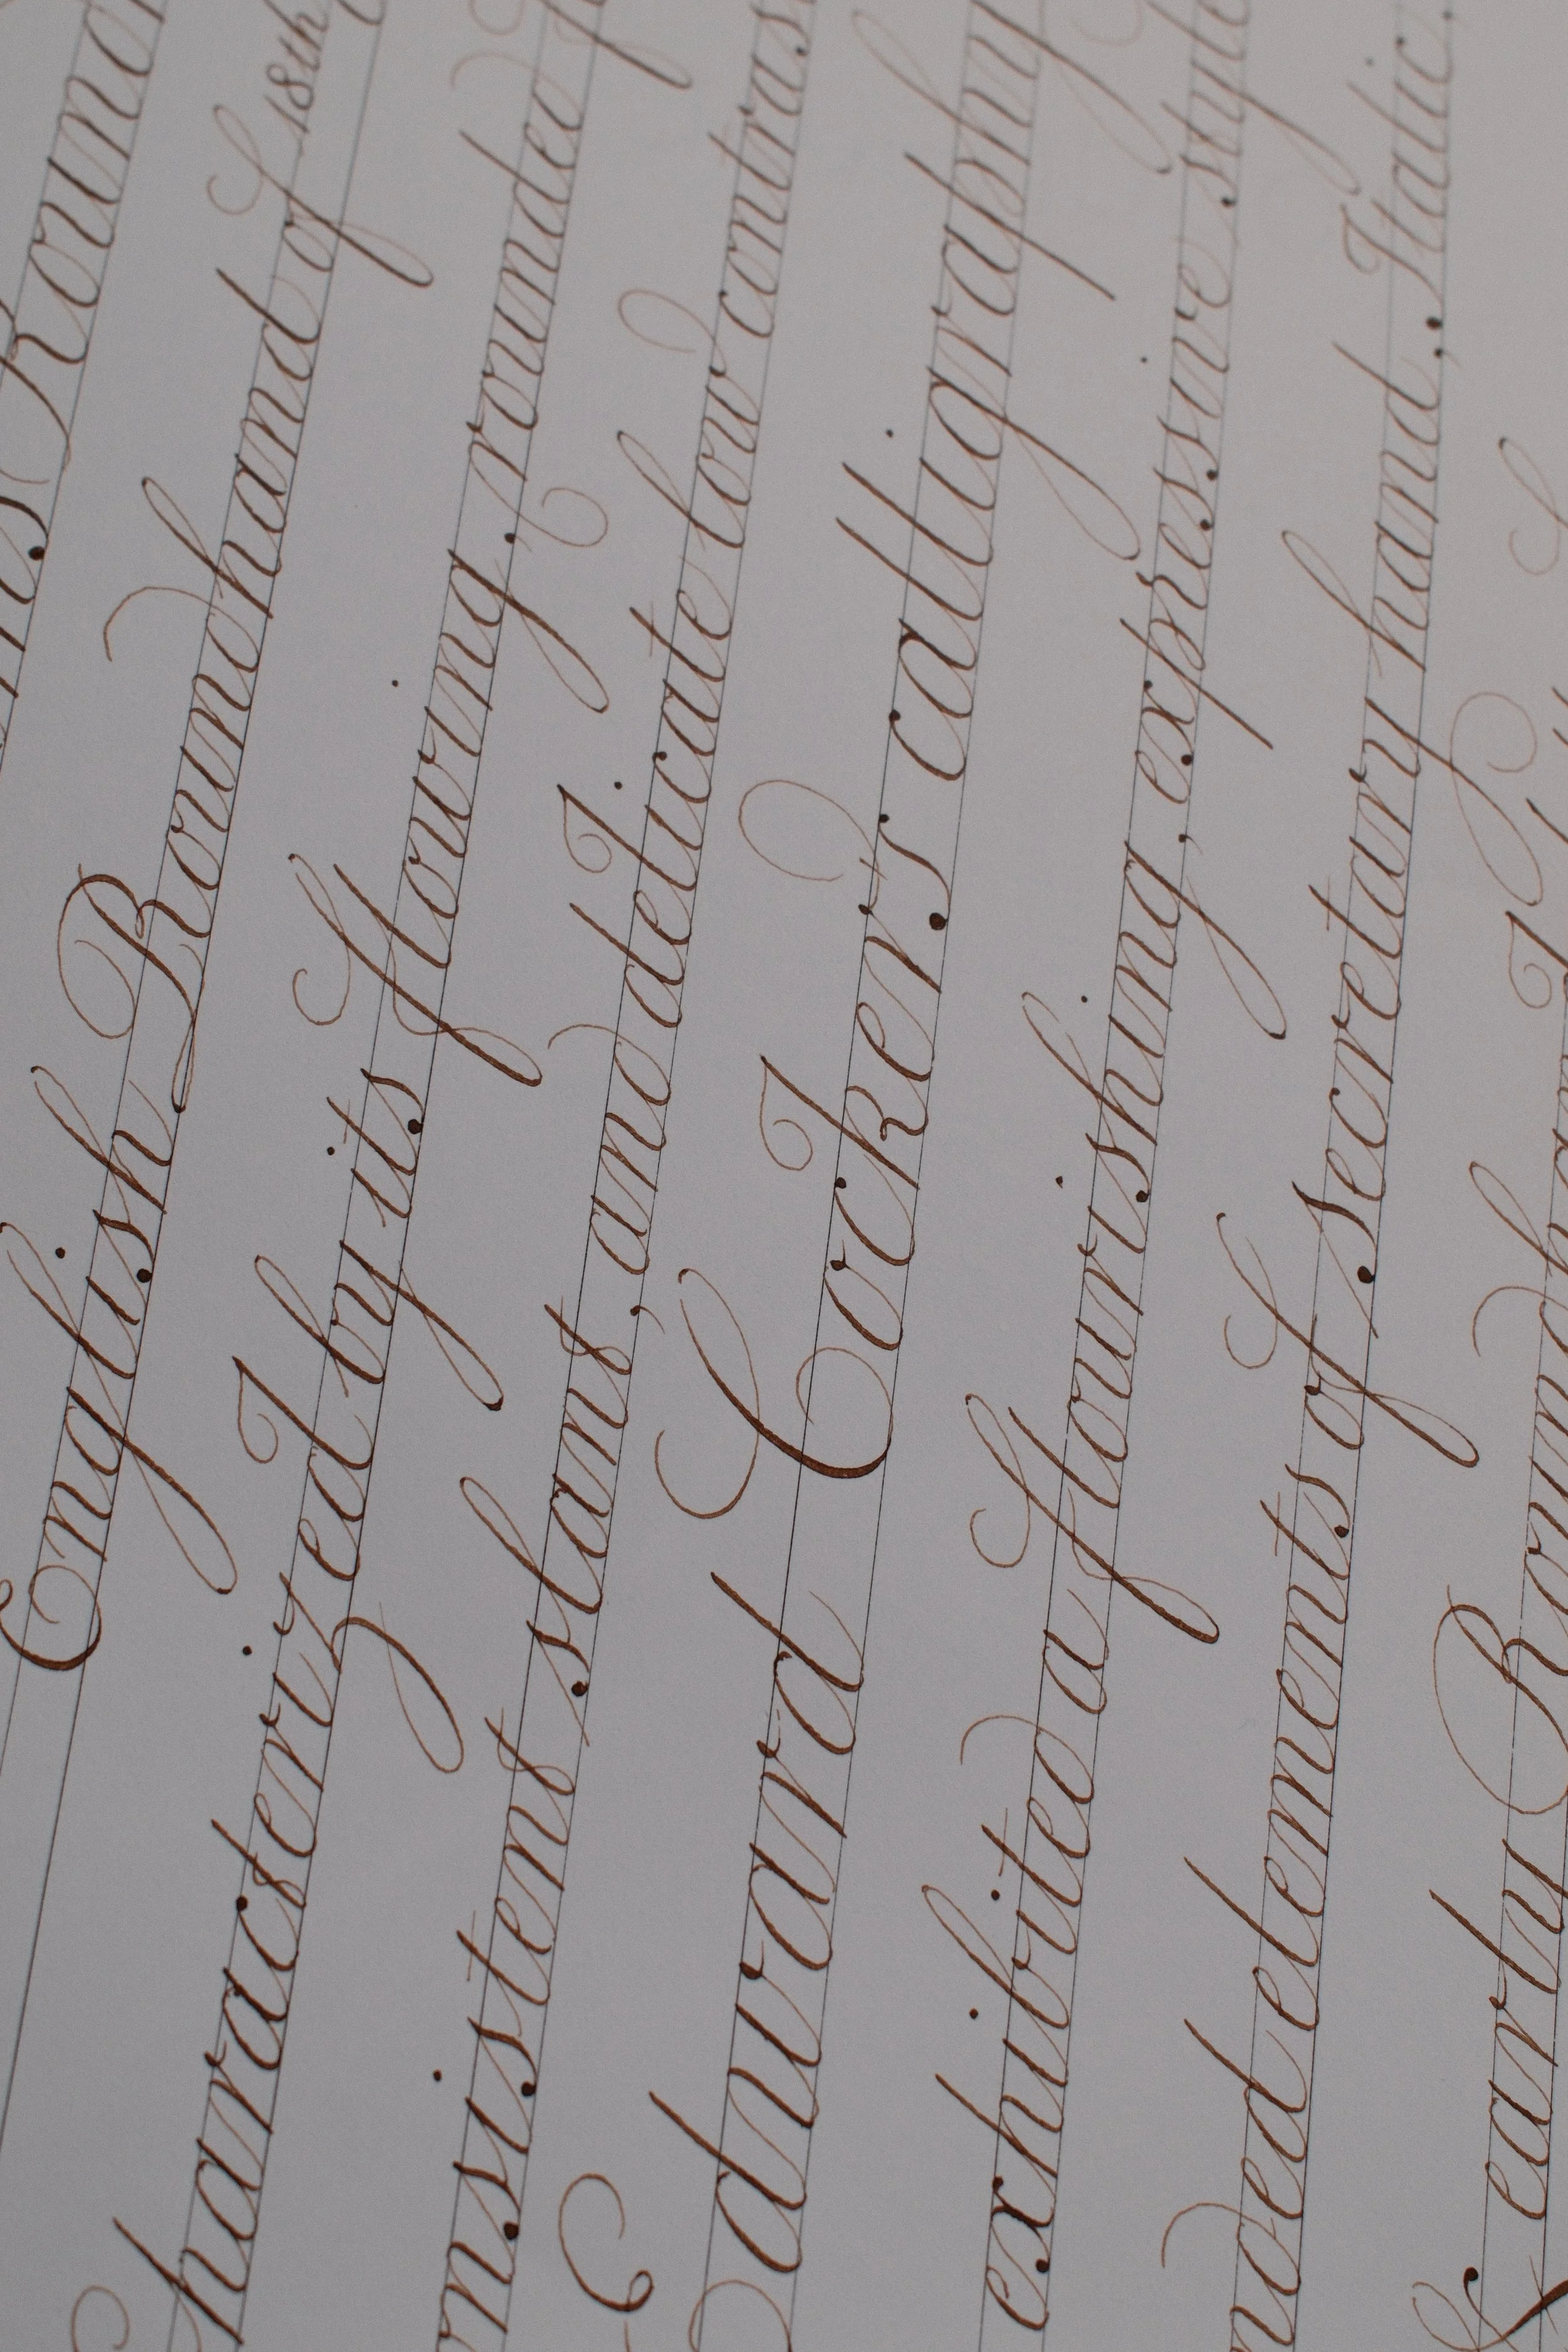 Round
English Roundhand of 18th
characterized by its flowing, rounded
nsistent slant, and delicate low contras
Edward Cocker's calligraphy
exhibited a flourishing, expressive style
nded elements of secretary hand, Italic,
& early Round